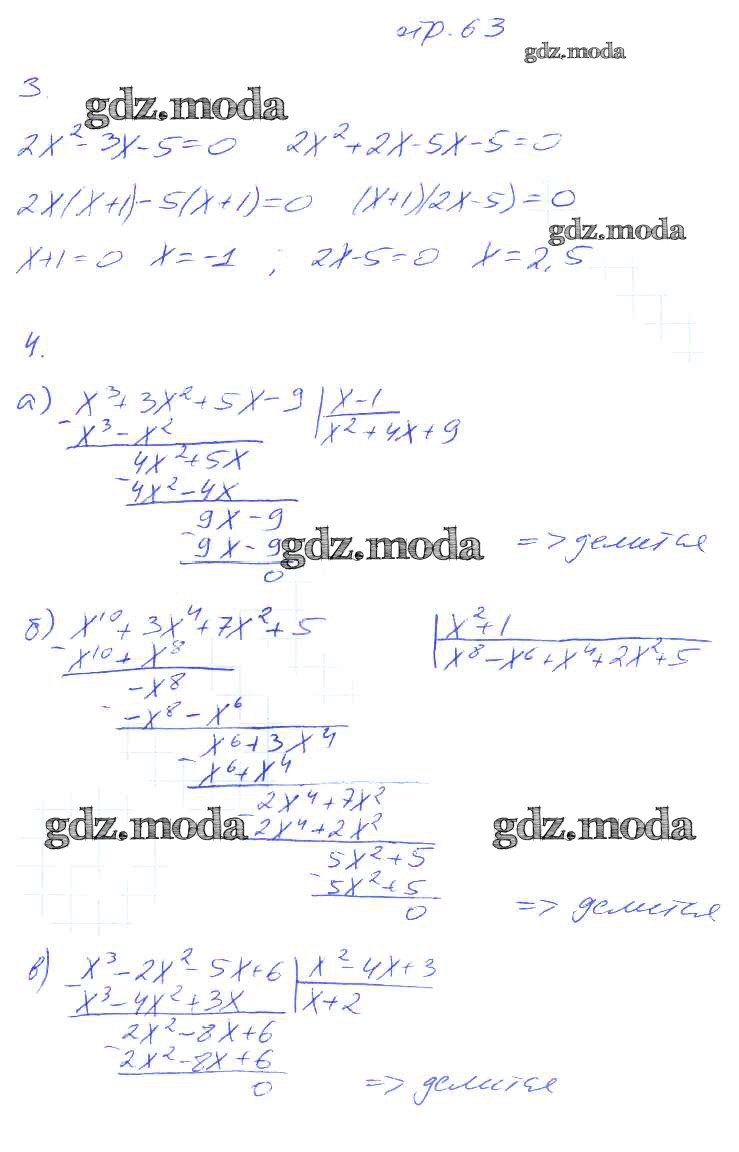 стр. 63
gdz.moda
3.
gdz.moda
2x² - 3x - 5 = 0 2x² + 2x - 5x - 5 = 0
2x(x+1) - 5(x+1) = 0 (x+1)(2x-5) = 0
gdz.moda
x+1 = 0 x = -1 ; 2x-5 = 0 x = 2,5
4.
а) x³ + 3x² + 5x - 9 | x - 1
- x³ - x² | x² + 4x + 9
4x² + 5x
- 4x² - 4x
9x - 9
- 9x - 9 gdz.moda => делится
0
б) x¹⁰ + 3x⁴ + 7x² + 5 | x² + 1
- x¹⁰ + x⁸ | x⁸ - x⁶ + x⁴ + 2x² + 5
-x⁸
- -x⁸ - x⁶
x⁶ + 3x⁴
- x⁶ + x⁴
2x⁴ + 7x²
gdz.moda - 2x⁴ + 2x² gdz.moda
5x² + 5
- 5x² + 5
0 => делится
в) x³ - 2x² - 5x + 6 | x² - 4x + 3
- x³ - 4x² + 3x | x + 2
2x² - 8x + 6
- 2x² - 8x + 6
0 => делится